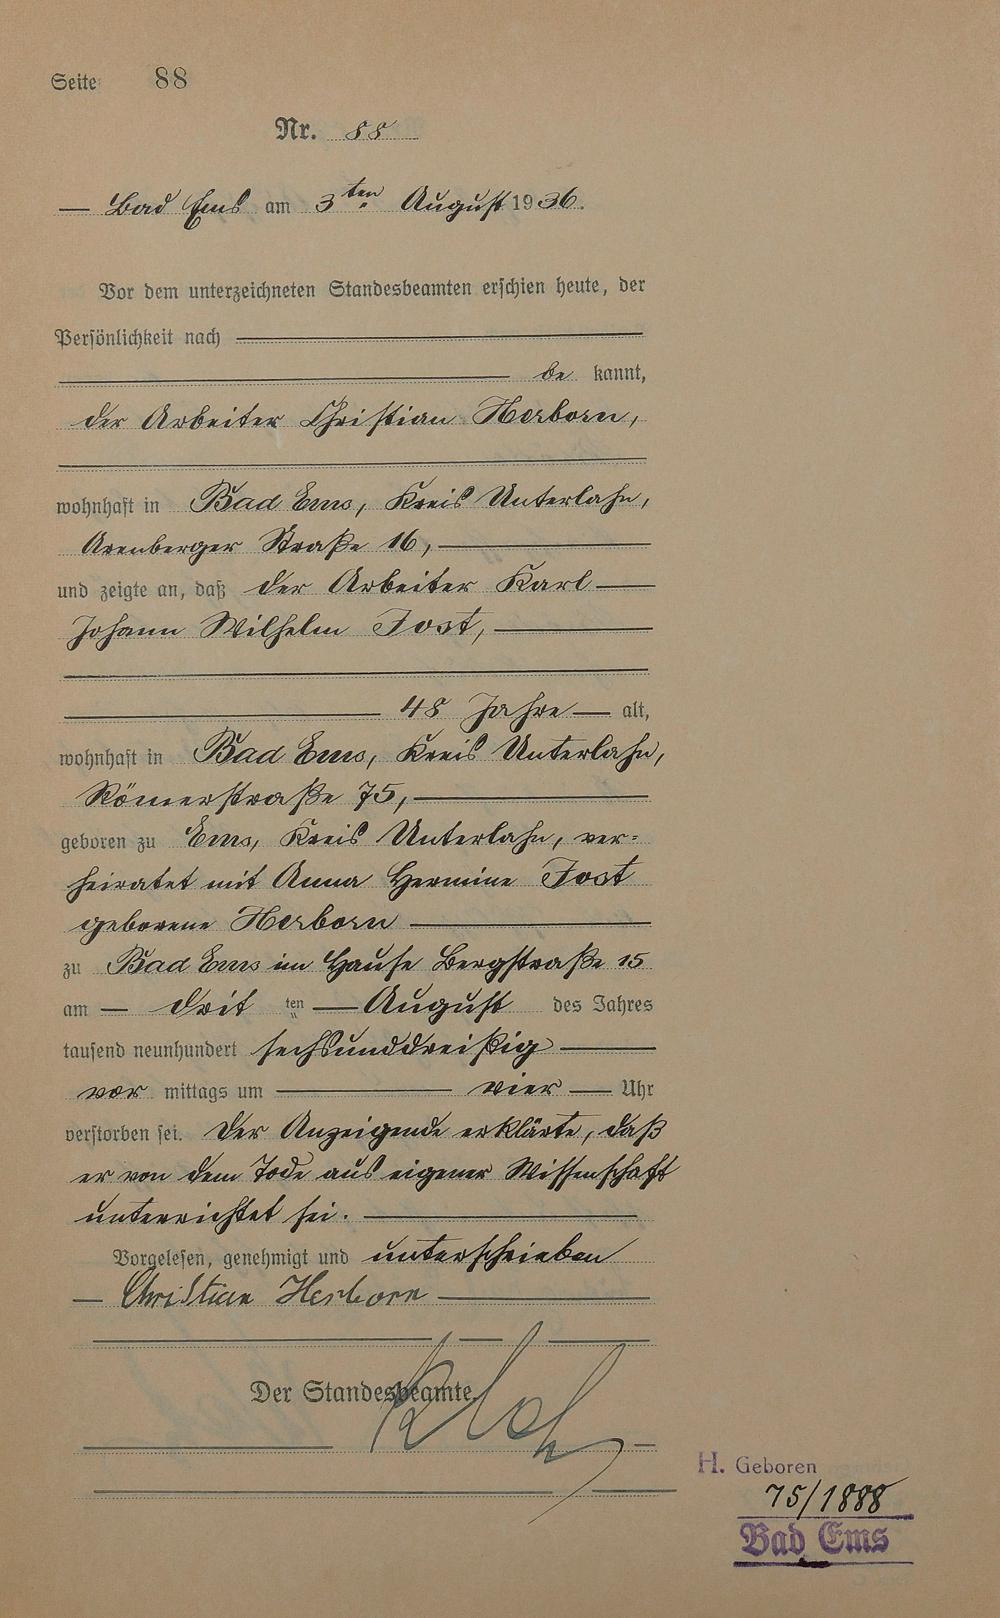 Seite 88
Nr. 88
— Bad Ems am 3ten August 1936.
Vor dem unterzeichneten Standesbeamten erschien heute, der
Persönlichkeit nach
be kannt,
der Arbeiter Christian Herborn,
wohnhaft in Bad Ems, Kreis Unterlahn,
Arenberger Straße 16,
und zeigte an, daß der Arbeiter Karl
Johann Wilhelm Jost,
48 Jahre — alt,
wohnhaft in Bad Ems, Kreis Unterlahn,
Römerstraße 75,
geboren zu Ems, Kreis Unterlahn, ver=
heiratet mit Anna Hermine Jost
geborene Herborn
zu Bad Ems im Hause Bergstraße 15
am — drit ten — August des Jahres
tausend neunhundert sechsunddreißig
vor mittags um vier — Uhr
verstorben sei. Der Anzeigende erklärte, daß
er von dem Tode aus eigener Wissenschaft
unterrichtet sei.
Vorgelesen, genehmigt und unterschrieben
— Christian Herborn
Der Standesbeamte.
H. Geboren
75/1888
Bad Ems